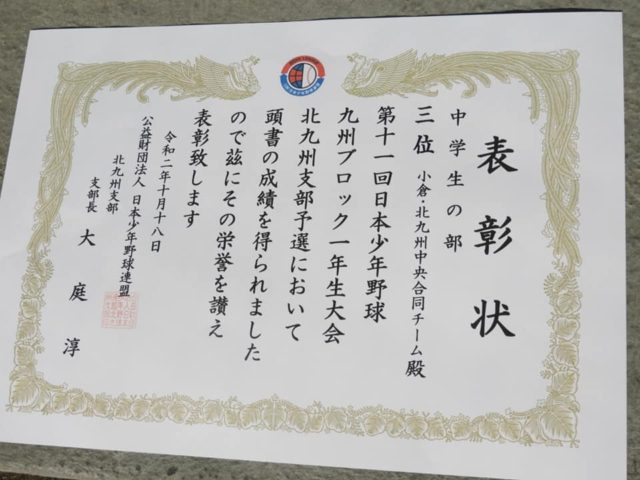 表彰状
中学生の部
三位 小倉・北九州中央合同チーム殿
第十一回日本少年野球
九州ブロック一年生大会
北九州支部予選において
頭書の成績を得られました
ので茲にその栄誉を讃え
表彰致します
令和二年十月十八日
公益財団法人 日本少年野球連盟
北九州支部
支部長 大庭淳